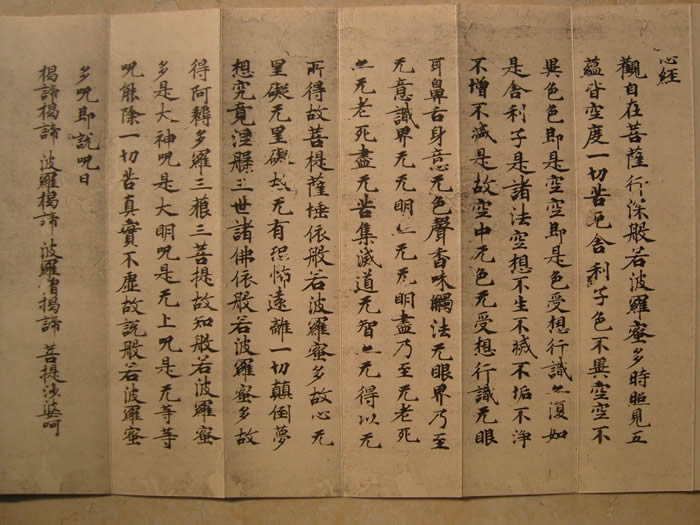 心経
觀自在菩薩行深般若波羅蜜多時照見五
蘊皆空度一切苦厄舍利子色不異空空不
異色色即是空空即是色受想行識亦復如
是舍利子是諸法空想不生不滅不垢不淨
不增不減是故空中无色无受想行識无眼
耳鼻舌身意无色聲香味觸法无眼界乃至
无意識界无无明亦无无明盡乃至无老死
亦无老死盡无苦集滅道无智亦无得以无
所得故菩提薩埵依般若波羅蜜多故心无
罣礙无罣礙故无有恐怖遠離一切顛倒夢
想究竟涅槃三世諸佛依般若波羅蜜多故
得阿耨多羅三藐三菩提故知般若波羅蜜
多是大神呪是大明呪是无上呪是无等等
呪能除一切苦真實不虛故說般若波羅蜜
多呪即說呪曰
揭諦揭諦 波羅揭諦 波羅僧揭諦 菩提沙婆呵